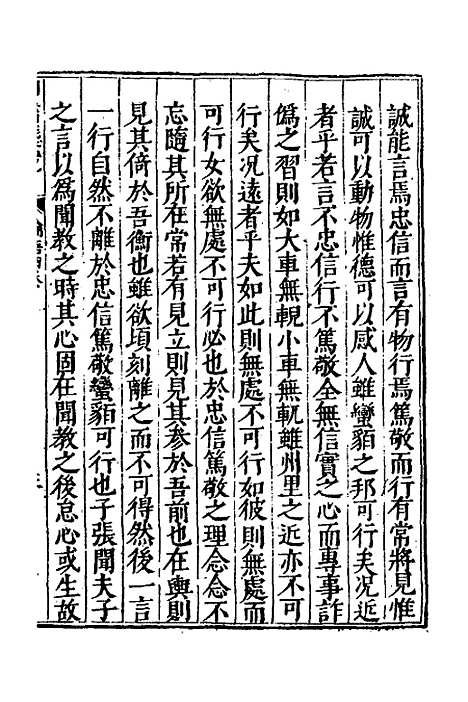 誠能言焉忠信而言有物行焉篤敬而行有常將見惟
誠可以動物惟德可以感人雖蠻貊之邦可行矣况近
者乎若言不忠信行不篤敬全無信實之心而專事詐
僞之習則如大車無輗小車無軏雖州里之近亦不可
行矣况遠者乎夫如此則無處不可行如彼則無處而
可行女欲無處不可行必也於忠信篤敬之理念念不
忘隨其所在常若有見立則見其參於吾前也在輿則
見其倚於吾衡也雖欲頃刻離之而不可得然後一言
一行自然不離於忠信篤敬蠻貊可行也子張聞夫子
之言以爲聞教之時其心固在聞教之後怠心或生故